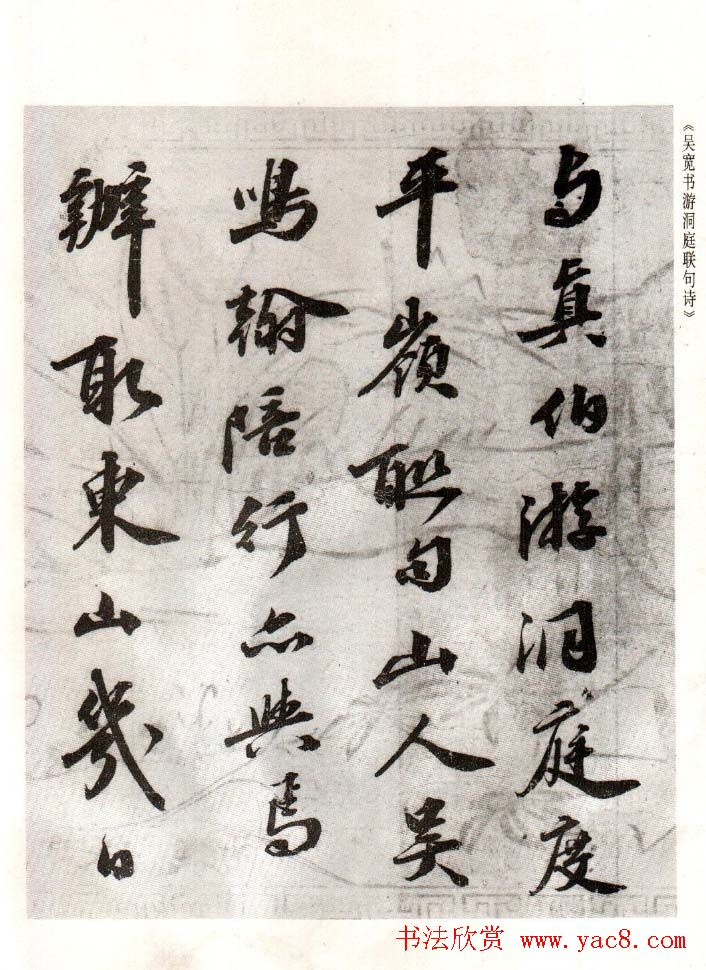 《吴宽书游洞庭联句诗》
与真伯游洞庭度
平嶺聮句山人吴
鳴翰陪行亦與焉
辦取東山幾日
书法欣赏 www.yac8.com